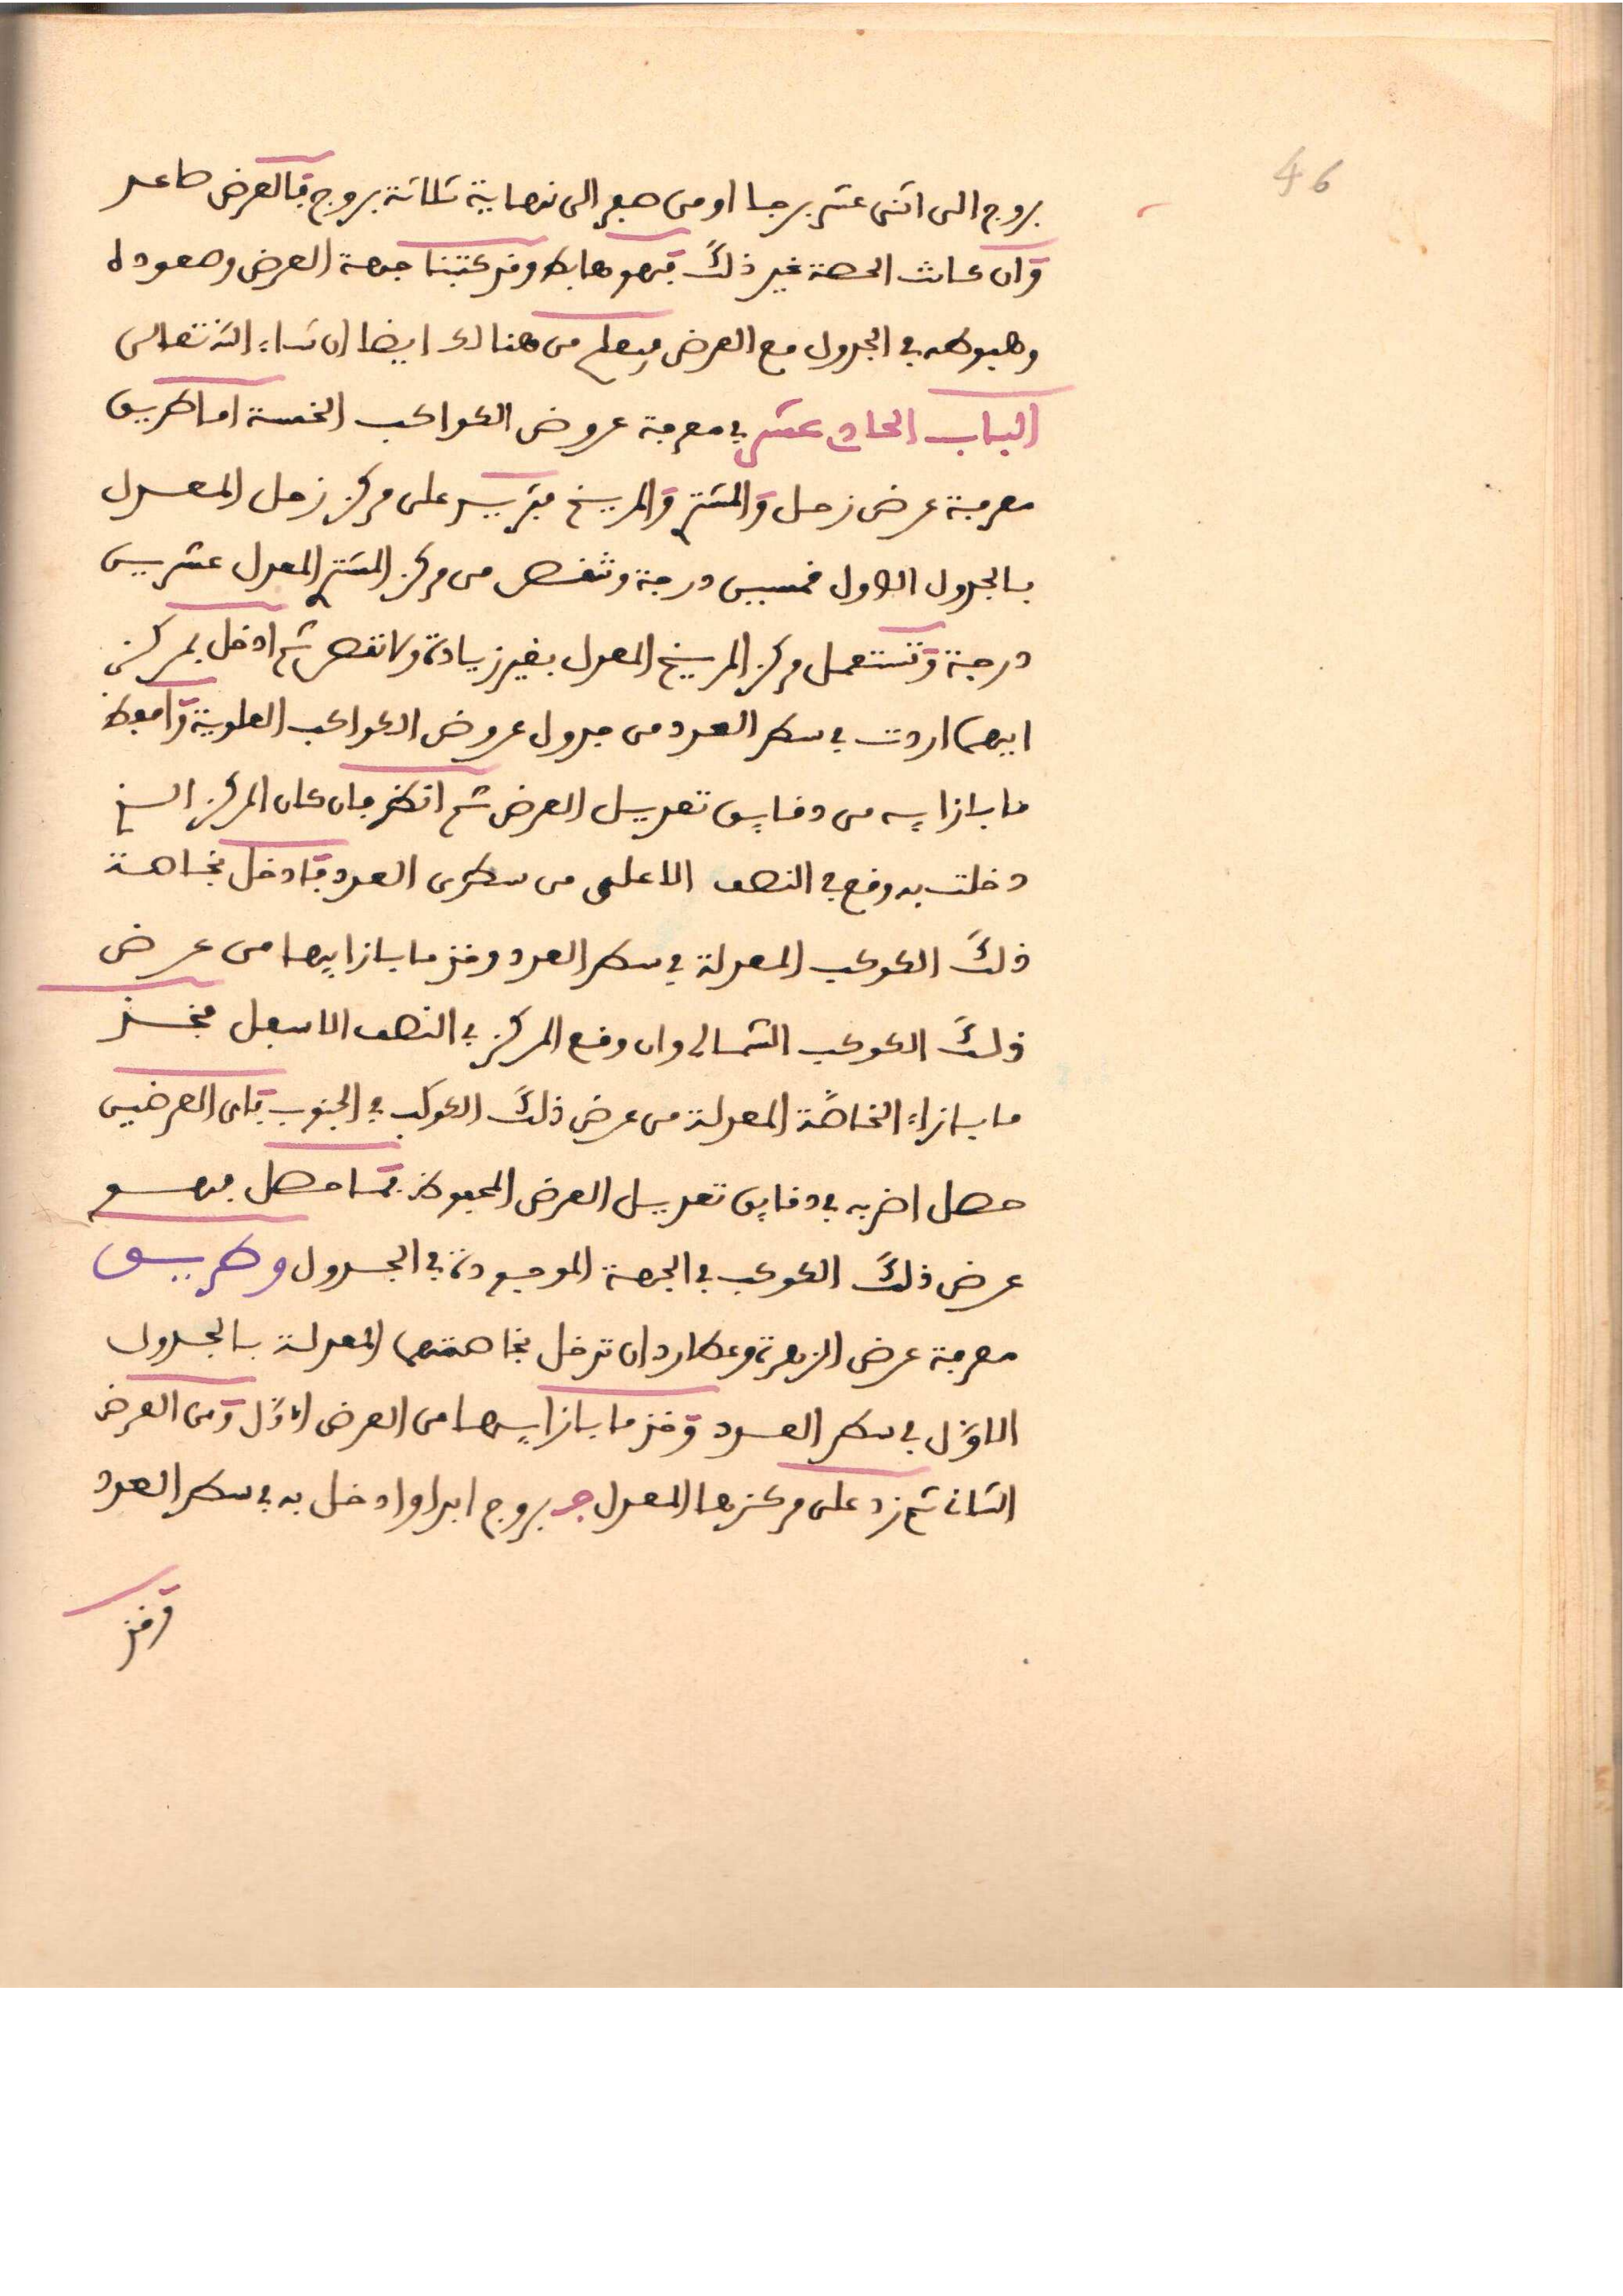 46
بروج الى اثنى عشر برجا او من صفر الى نهاية ثلاثة بروج فالعرض صاعد
وان كانت الحصة غير ذلك فهو هابط وقد كتبنا جهة العرض وصعوده
وهبوطه في الجدول مع العرض فيعلم من هنالك ايضا ان شاء الله تعالى
الباب الحادي عشر في معرفة عروض الكواكب الخمسة اما طريق
معرفة عرض زحل والمشتري والمريخ فتزيد على مركز زحل المعدل
بالجدول الاول خمسين درجة وتنقص من مركز المشتري المعدل عشرين
درجة وتستعمل مركز المريخ المعدل بغير زيادة ولا نقص ثم ادخل بمركز
ايهما اردت في سطر العدد من جدول عروض الكواكب العلوية واحفظ
ما بازايه من دقايق تعديل العرض ثم انظر فان كان المركز الذي
دخلت به وقع في النصف الاعلى من سطرى العدد فادخل بخاصة
ذلك الكوكب المعدلة في سطر العدد وخذ ما بازايها من عرض
ذلك الكوكب الشمالي وان وقع المركز في النصف الاسفل فخذ
ما بازاء الخاصة المعدلة من عرض ذلك الكوكب في الجنوب فاى العرضين
حصل اضربه في دقايق تعديل العرض المحفوظ فما حصل فهو
عرض ذلك الكوكب في الجهة الموجودة في الجدول وطريق
معرفة عرض الزهرة وعطارد ان تدخل بخاصتهما المعدلة بالجدول
الاول في سطر العدد وخذ ما بازايها من العرض الاول ومن العرض
الثاني ثم زد على مركزها المعدل ج بروج ابدا وادخل به في سطر العدد
وخذ